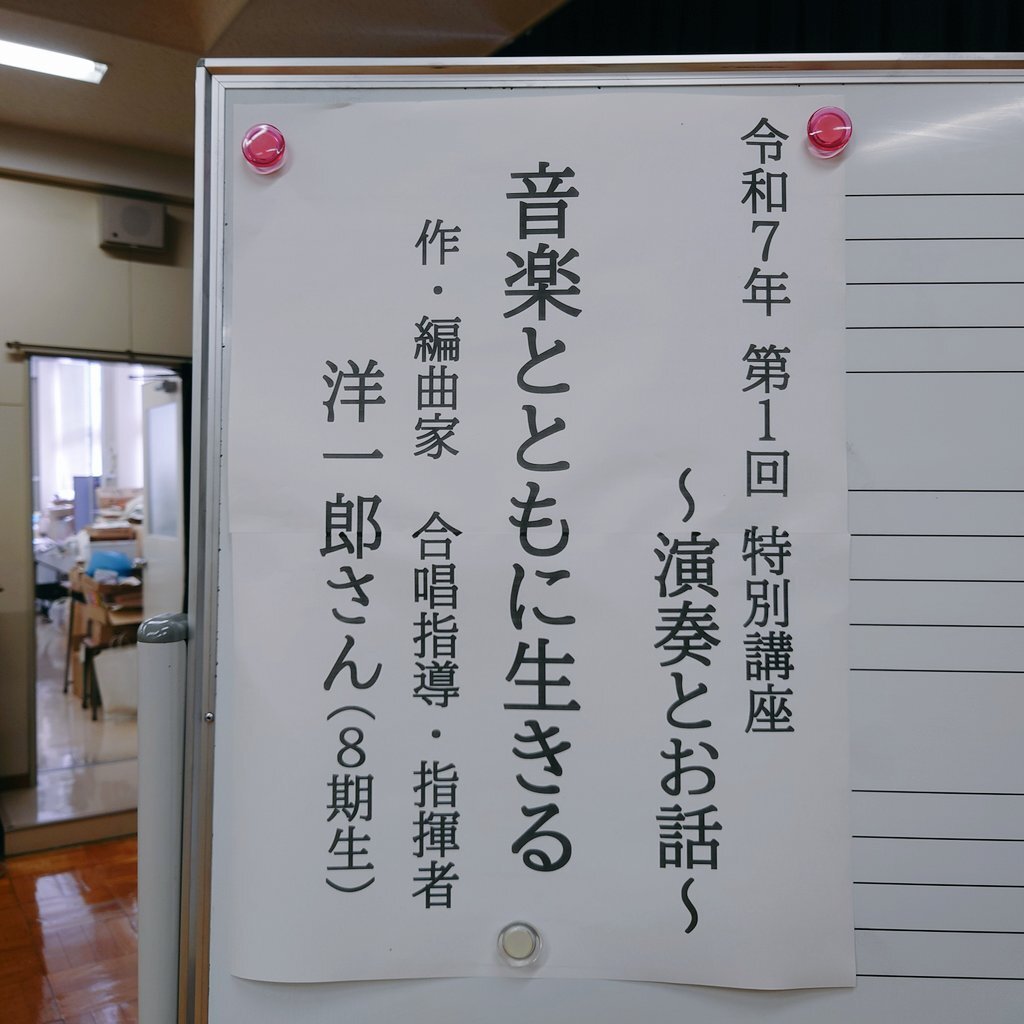 令和7年 第1回 特別講座
～演奏とお話～
音楽とともに生きる
作・編曲家 合唱指導・指揮者
洋一郎さん(8期生)